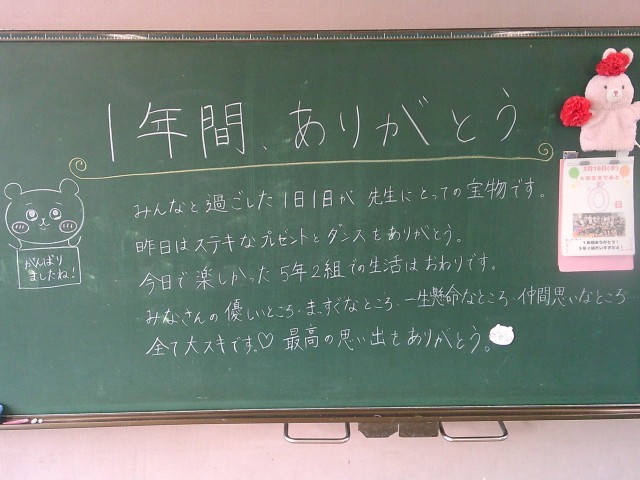 1年間、ありがとう
みんなと過ごした1日1日が 先生にとっての宝物です。
昨日はステキなプレゼントとダンスをありがとう。
今日で楽しかった5年2組での生活はおわりです。
みなさんの優しいところ・まっすぐなところ・一生懸命なところ・仲間思いなところ
全て大スキです。♡ 最高の思い出をありがとう。
がんばり
ましたね！